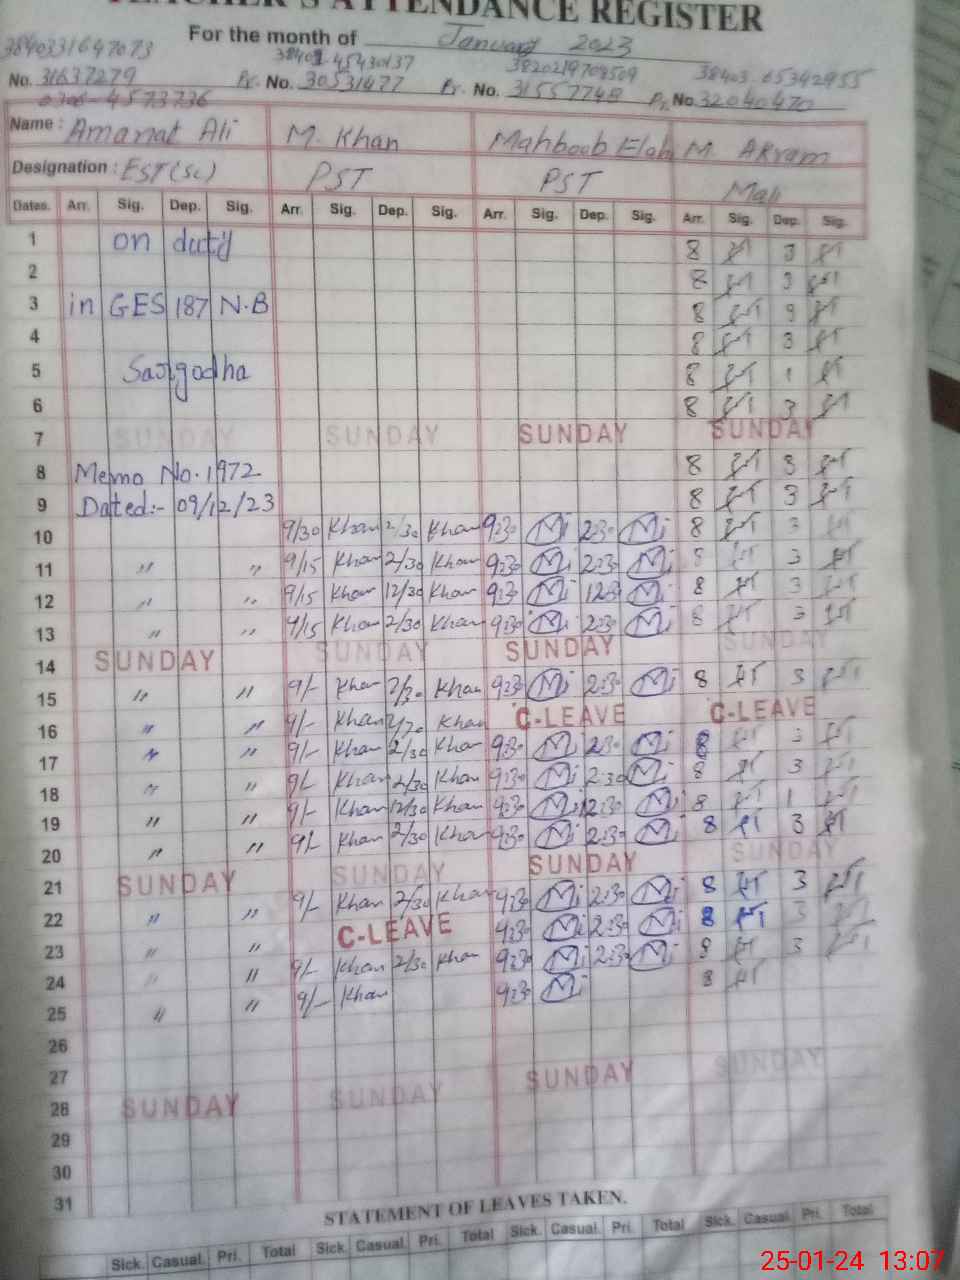 TEACHER'S ATTENDANCE REGISTER
For the month of January 2023
3840331647073 38403-65342955
No. 31637279 Pr. No. 30531477 Pr. No. 31557748 Pr. No. 32040470
Name : Amanat Ali M. Khan Mahboob Elahi M. Akram
Designation : EST(Sc) PST PST Mali
Dates. Arr. Sig. Dep. Sig. Arr. Sig. Dep. Sig. Arr. Sig. Dep. Sig. Arr. Sig. Dep. Sig.
1 on duty 8 3
2 8 3
3 in GES 187 N.B 8
4 8 3
5 Sargodha 8 1
6 8 3
7 SUNDAY SUNDAY SUNDAY SUNDAY
8 Memo No. 1972 8 3
9 Dated:- 09/12/23 8 3
10 9/30 Khan 2/30 Khan 9:30 2:30 8 3
11 " " 9/15 Khan 2/30 Khan 9:30 2:30 8 3
12 " " 9/15 Khan 12/30 Khan 9:30 12:30 8 3
13 " " 9/15 Khan 2/30 Khan 9:30 2:30 8 3
14 SUNDAY SUNDAY SUNDAY SUNDAY
15 " " 9/- Khan 2/30 Khan 9:30 2:30 8 3
16 " " 9/- Khan 2/30 Khan C-LEAVE C-LEAVE
17 " " 9/- Khan 2/30 Khan 9:30 2:30 8 3
18 " " 9/- Khan 2/30 Khan 9:30 2:30 8 3
19 " " 9/- Khan 12/30 Khan 9:30 12:30 8 1
20 " " 9/- Khan 2/30 Khan 9:30 2:30 8 3
21 SUNDAY SUNDAY SUNDAY SUNDAY
22 " " 9/- Khan 2/30 Khan 9:30 2:30 8 3
23 " " C-LEAVE 9:30 2:30 8 3
24 " " 9/- Khan 2/30 Khan 9:30 2:30 8 3
25 " " 9/- Khan 9:30 8
26
27
28 SUNDAY SUNDAY SUNDAY SUNDAY
29
30
31
STATEMENT OF LEAVES TAKEN.
Sick. Casual. Pri. Total Sick. Casual. Pri. Total Sick. Casual. Pri. Total Sick. Casual. Pri. Total
25-01-24 13:07